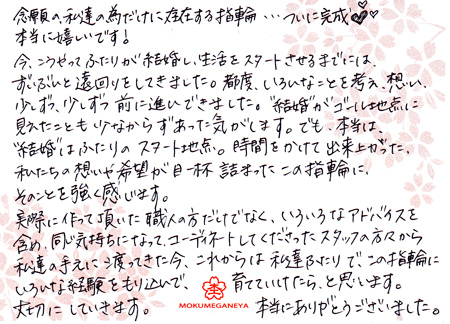 念願の私達の為だけに存在する指輪…ついに完成♥♥
本当に嬉しいです!
今、こうやってふたりが結婚し、生活をスタートさせるまでには、
ずいぶんと遠回りをしてきました。都度、いろいろなことを考え、想い、
少しずつ、少しずつ前に進んできました。"結婚"がゴール地点に
見えたことも少なからずあった気がします。でも、本当は、
"結婚"はふたりのスタート地点。時間をかけて出来上がった、
私たちの想いや希望が目一杯詰まったこの指輪に、
そのことを強く感じます。
実際に作って頂いた職人の方だけでなく、いろいろなアドバイスを
含め、同じ気持ちになって、コーディネートしてくださったスタッフの方々から
私達の手元に渡ってきた今、これからは私達ふたりでこの指輪に
いろいろな経験をもり込んで、育てていけたら、と思います。
大切にしていきます。本当にありがとうございました。
MOKUMEGANEYA